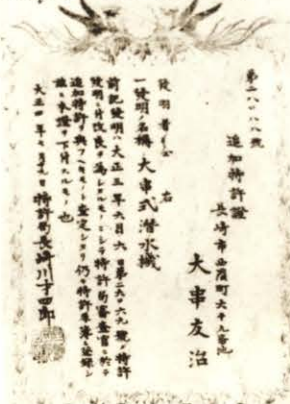 第二八八八號
追加特許證
長崎市西濱町六十九番地
大串友治
發明者
右
一發明ノ名稱 大串式潜水機
前記發明ハ大正三年六月六日第二六〇六九號ノ特許
發明ニ付改良ヲ為シタルモノニシテ特許局審査官ニ於テ
追加特許ヲ與フヘキモノト査定シタリ仍テ特許原簿ニ登録シ
茲ニ本證ヲ下付スルモノ也
大正四年七月 日 特許局長崎川才四郎